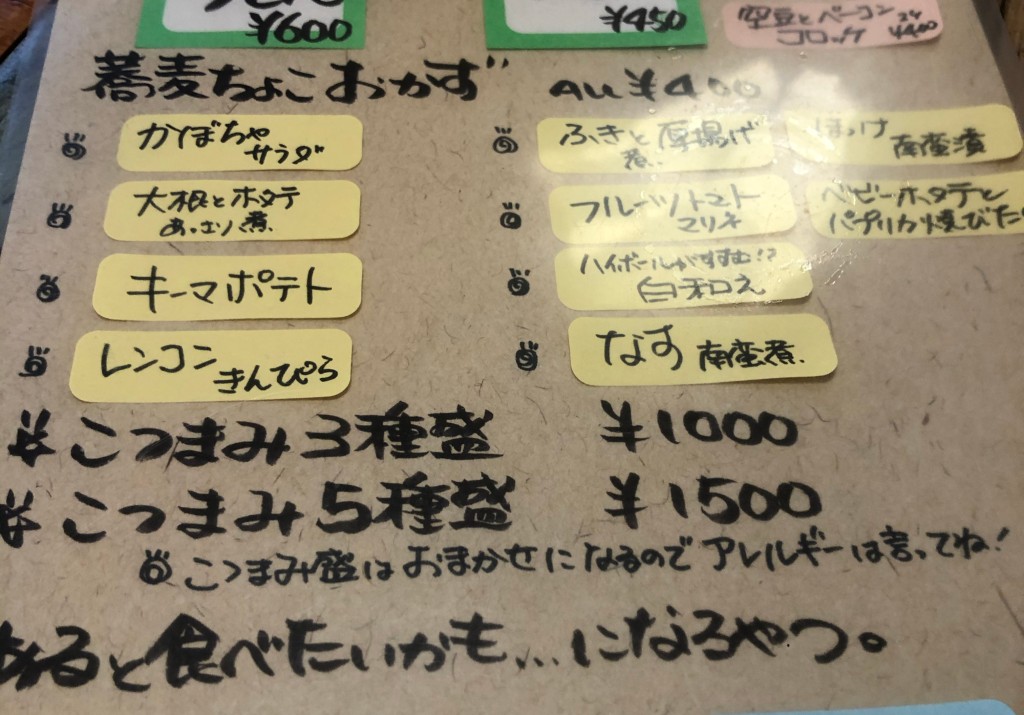 ¥600
¥450
空豆とベーコン
コロッケ 2ケ ¥400
蕎麦ちょこおかず au¥400
かぼちゃ
サラダ
ふきと厚揚げ
煮.
ほっけ
南蛮漬
大根とホタテ
あっさり煮.
フルーツトマト
マリネ
ベビーホタテと
パプリカ焼びた
キーマポテト
ハイボールがすすむ!?
白和え
レンコン
きんぴら
なす 南蛮煮.
こつまみ3種盛 ¥1000
こつまみ5種盛 ¥1500
こつまみ盛はおまかせになるのでアレルギーは言ってね!
あると食べたいかも...になるやつ。